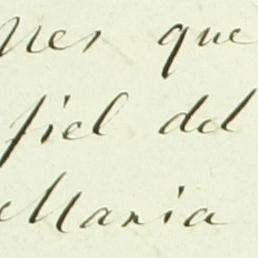 nes que
fiel del
Maria